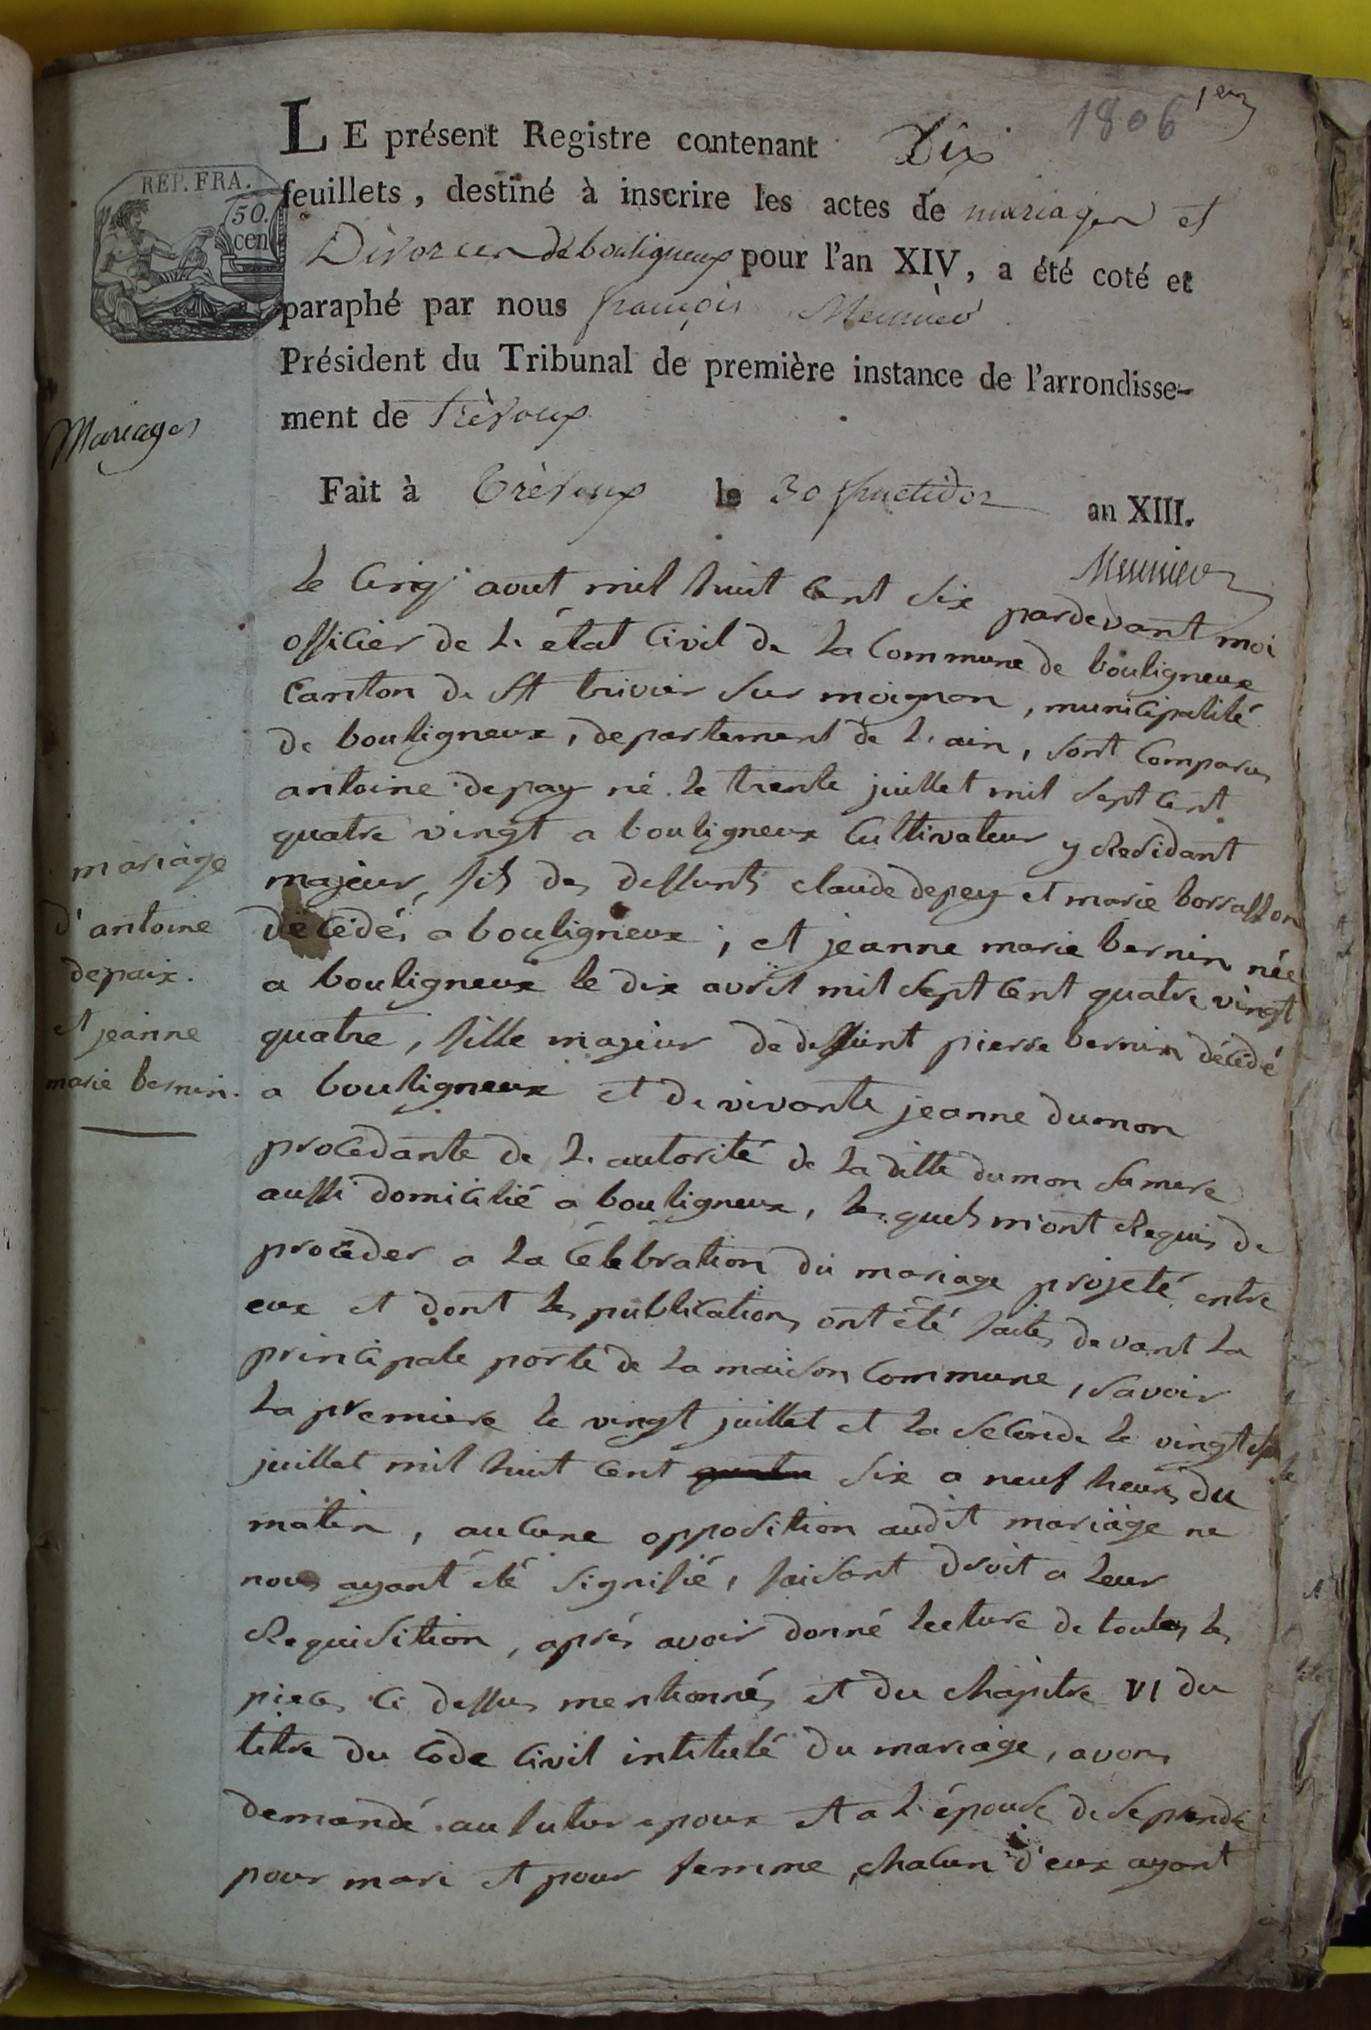 1806 1er
LE présent Registre contenant Dix
feuillets, destiné à inscrire les actes de mariages et
Divorces de bouligneux pour l'an XIV, a été coté et
paraphé par nous françois Meunier
Président du Tribunal de première instance de l'arrondisse-
ment de Trévoux
Fait à Trévoux le 30 fructidor an XIII.
Meunier
REP. FRA.
50.
cen
Mariages
mariage
d'antoine
depaix.
et jeanne
marie bernin.
le cinq aout mil huit cent six pardevant moi
officier de l'état civil de la commune de bouligneux
canton de st trivier sur moignon, municipalité
de bouligneux, departement de l'ain, sont comparus
antoine depay né le trente juillet mil sept cent
quatre vingt a bouligneux cultivateur y residant
majeur, fils des deffunts claude depey et marie borrasson
décédés a bouligneux; et jeanne marie bernin née
a bouligneux le dix avril mil sept cent quatre vingt
quatre, fille majeur de deffunt pierre bernin décédé
a bouligneux et de vivante jeanne dumon
procedante de l'autorité de la ditte dumon sa mere
aussi domicilié a bouligneux, les quels m'ont requis de
procéder a la célébration du mariage projeté entre
eux et dont les publications ont été faites devant la
principale porte de la maison commune, savoir
la premiere le vingt juillet et la seconde le vingt sept
juillet mil huit cent quatre six a neuf heures du
matin, aucune opposition audit mariage ne
nous ayant été signifié, faisant droit a leur
requisition, aprés avoir donné lecture de toutes les
pieces ci dessus mentionnés et du chapitre VI du
titre du code civil intitulé du mariage, avons
demandé au futur epoux et a l'épouse de se prendre
pour mari et pour femme, chacun d'eux ayant